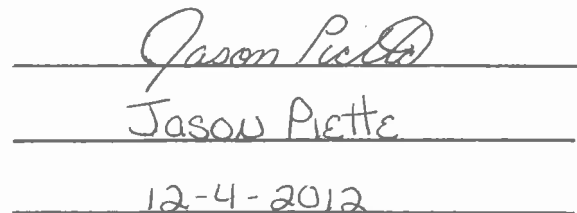 Jason Piette
Jason Piette
12-4-2012